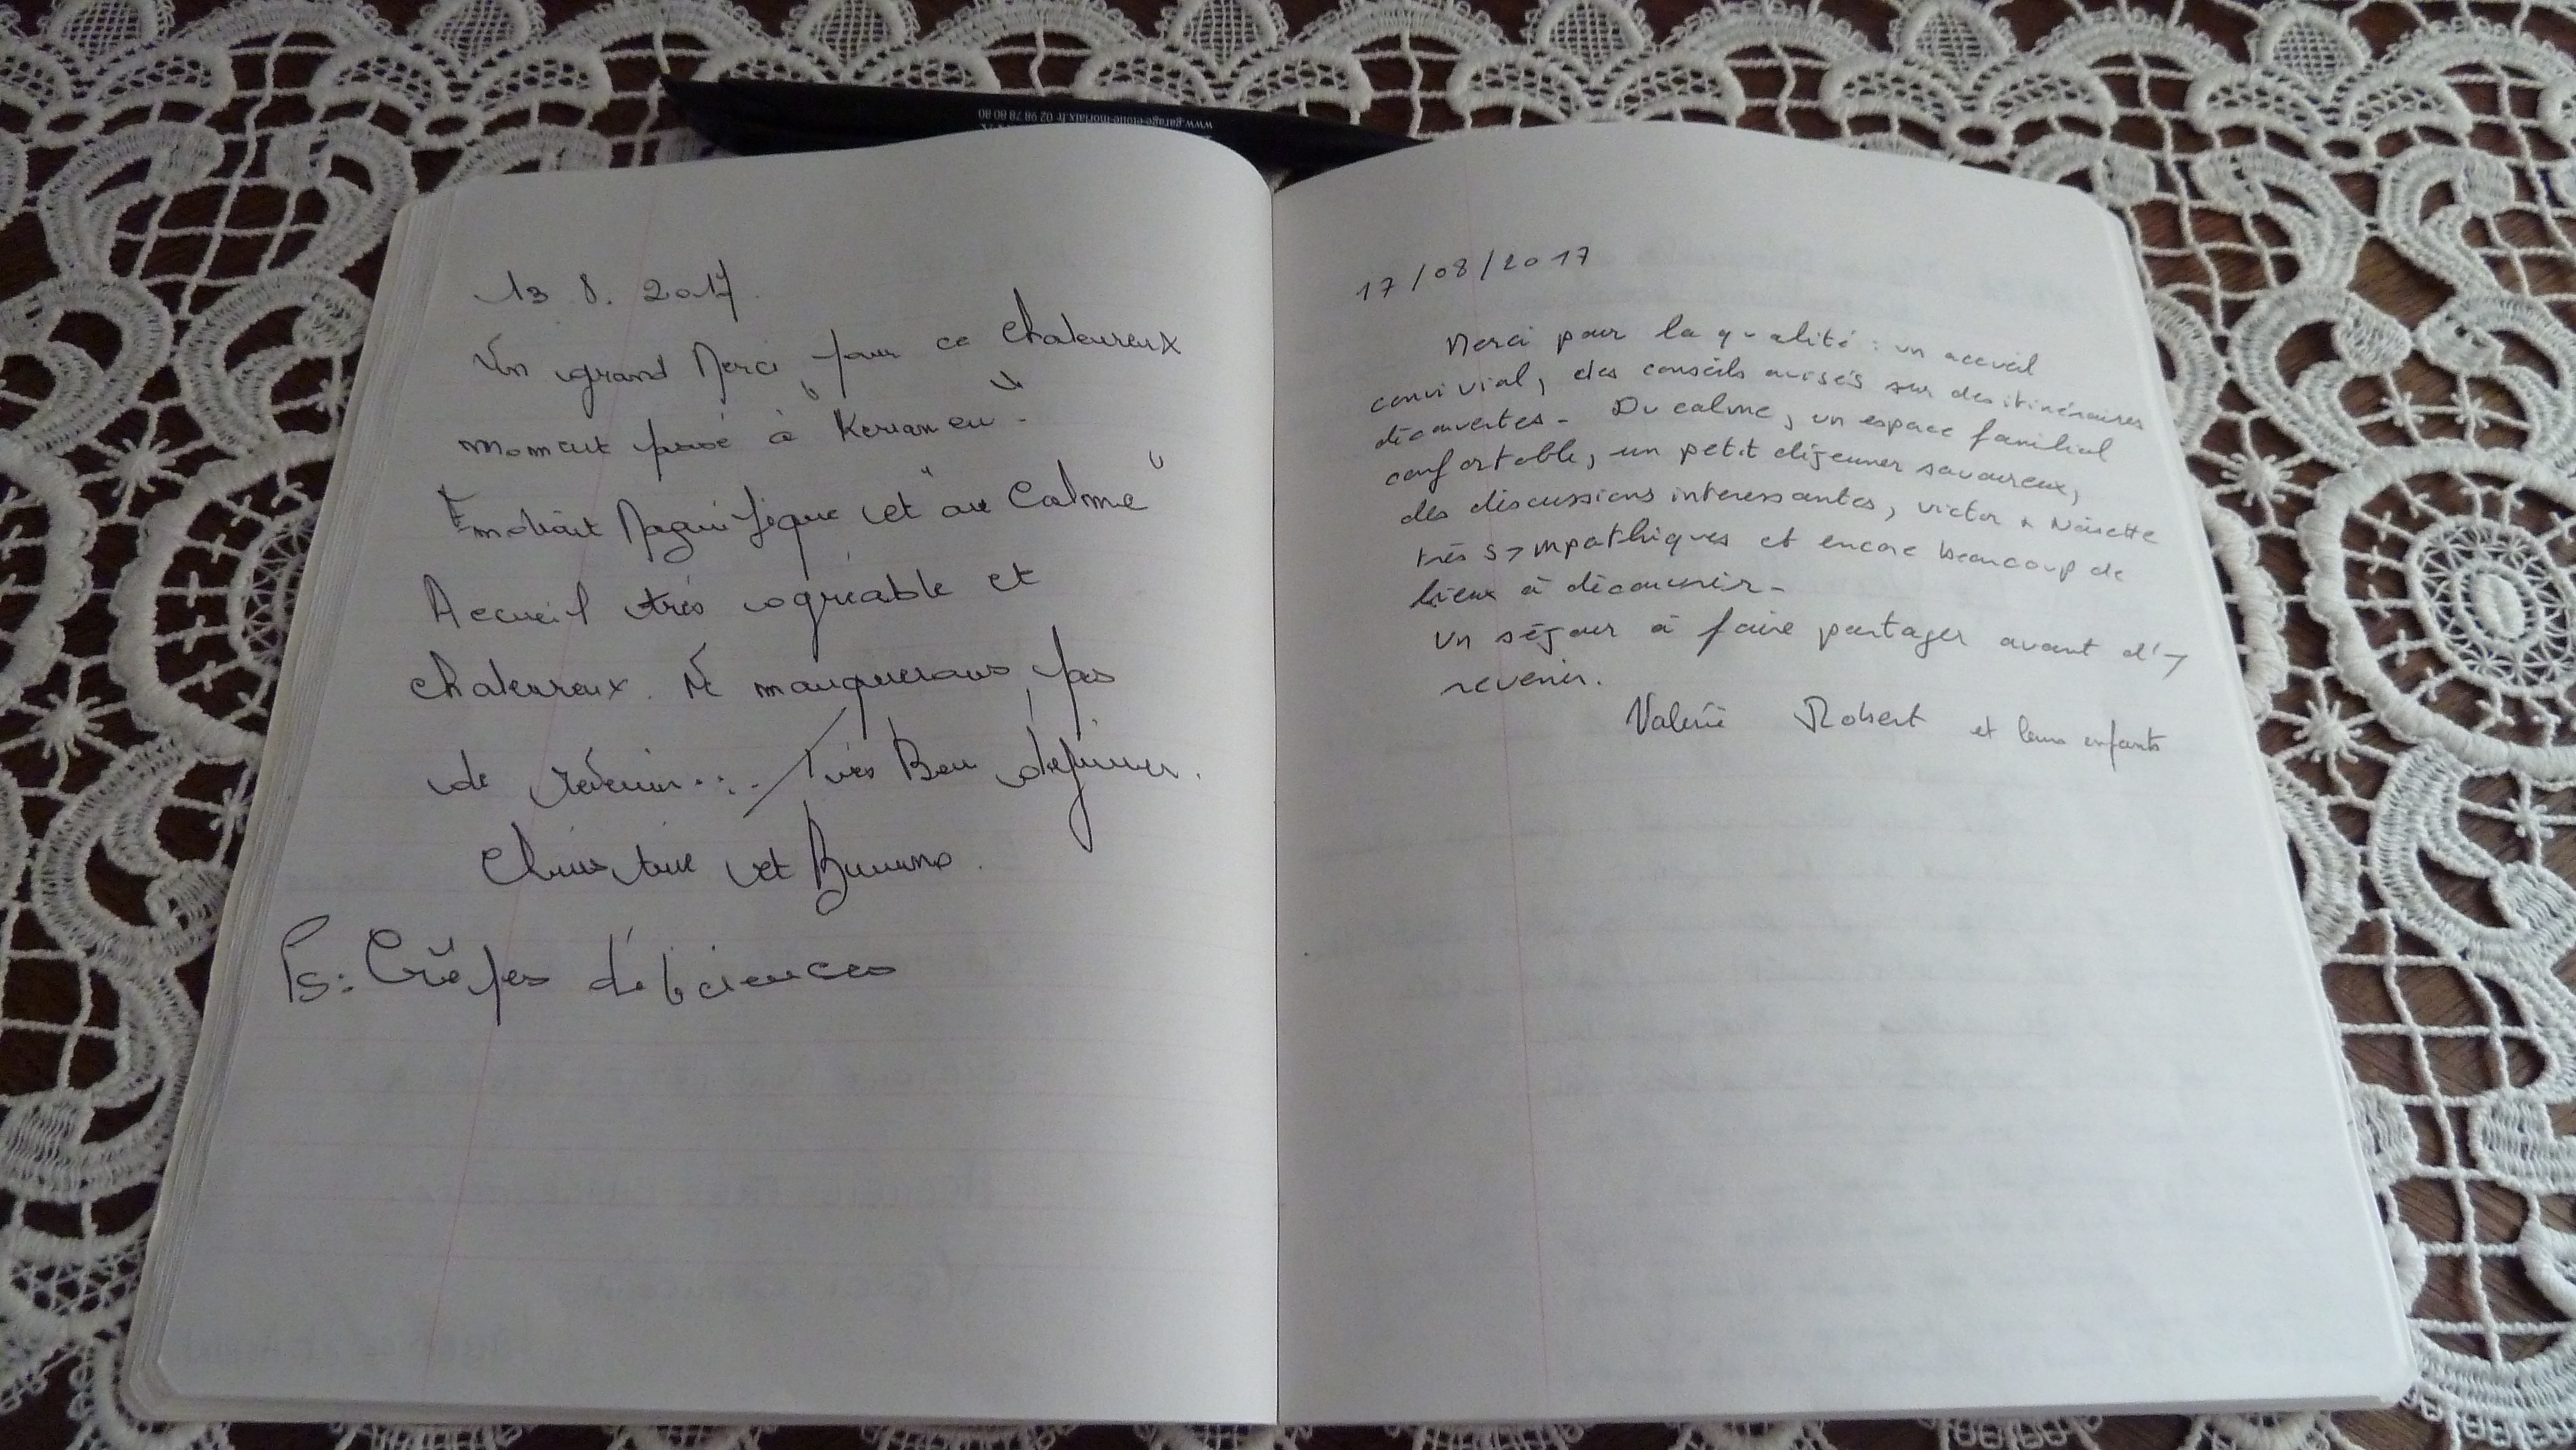 www.garage-etoile-morlaix.fr 02 98 78 80 80
13 8. 2017.
Un grand Merci pour ce chaleureux
moment passé à "Keriameu".
Endroit Magnifique et "au Calme"
Accueil très agréable et
chaleureux. Ne manquerons pas
de revenir... / Très Bon déjeuner.
Christine et Bruno.
Ps: Crêpes délicieuses
17/08/2017
Merci pour la qualité : un accueil
convivial, des conseils avisés sur des itinéraires
découvertes - Du calme, un espace familial
confortable, un petit déjeuner savoureux,
des discussions interessantes, victor & Noisette
très sympathiques et encore beaucoup de
lieux à découvrir -
Un séjour à faire partager avant d'y
revenir.
Valérie Robert et leurs enfants